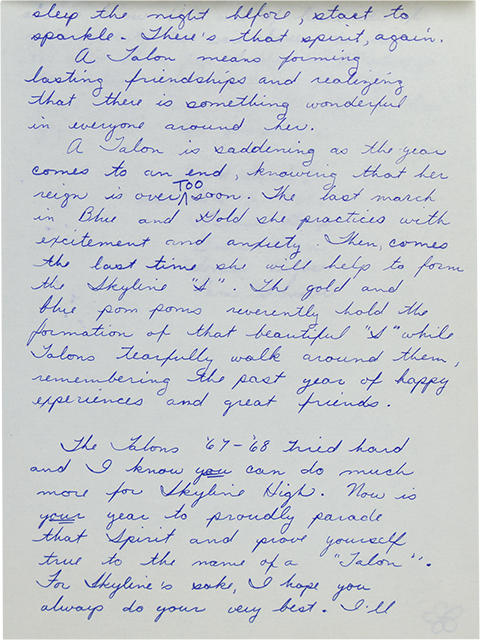 sleep the night before, start to
sparkle. There's that spirit, again.
A Talon means forming
lasting friendships and realizing
that there is something wonderful
in everyone around her.
A Talon is saddening as the year
comes to an end, knowing that her
reign is over TOO soon. The last march
in Blue and Gold she practices with
excitement and anxiety. Then, comes
the last time she will help to form
the Skyline "S". The gold and
blue pom poms reverently hold the
formation of that beautiful "S" while
Talons tearfully walk around them,
remembering the past year of happy
experiences and great friends.
The Talons '67-'68 tried hard
and I know you can do much
more for Skyline High. Now is
your year to proudly parade
that Spirit and prove yourself
true to the name of a "Talon".
For Skyline's sake, I hope you
always do your very best. I'll